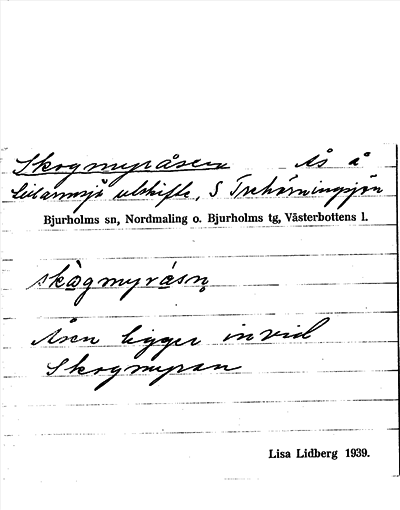 Skogmyråsen Ås å
utskifte, S Trehörningsjön
Bjurholms sn, Nordmaling o. Bjurholms tg, Västerbottens l.
skògmyråsn̥
Åsen ligger invid
Skogmyran
Lisa Lidberg 1939.